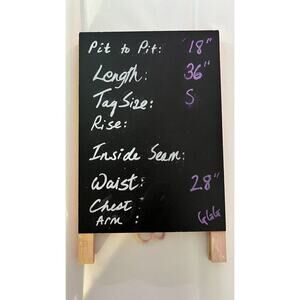 Pit to Pit: 18"
Length: 36"
Tag Size: S
Rise:
Inside Seam:
Waist: 28"
Chest
Arm : GGG